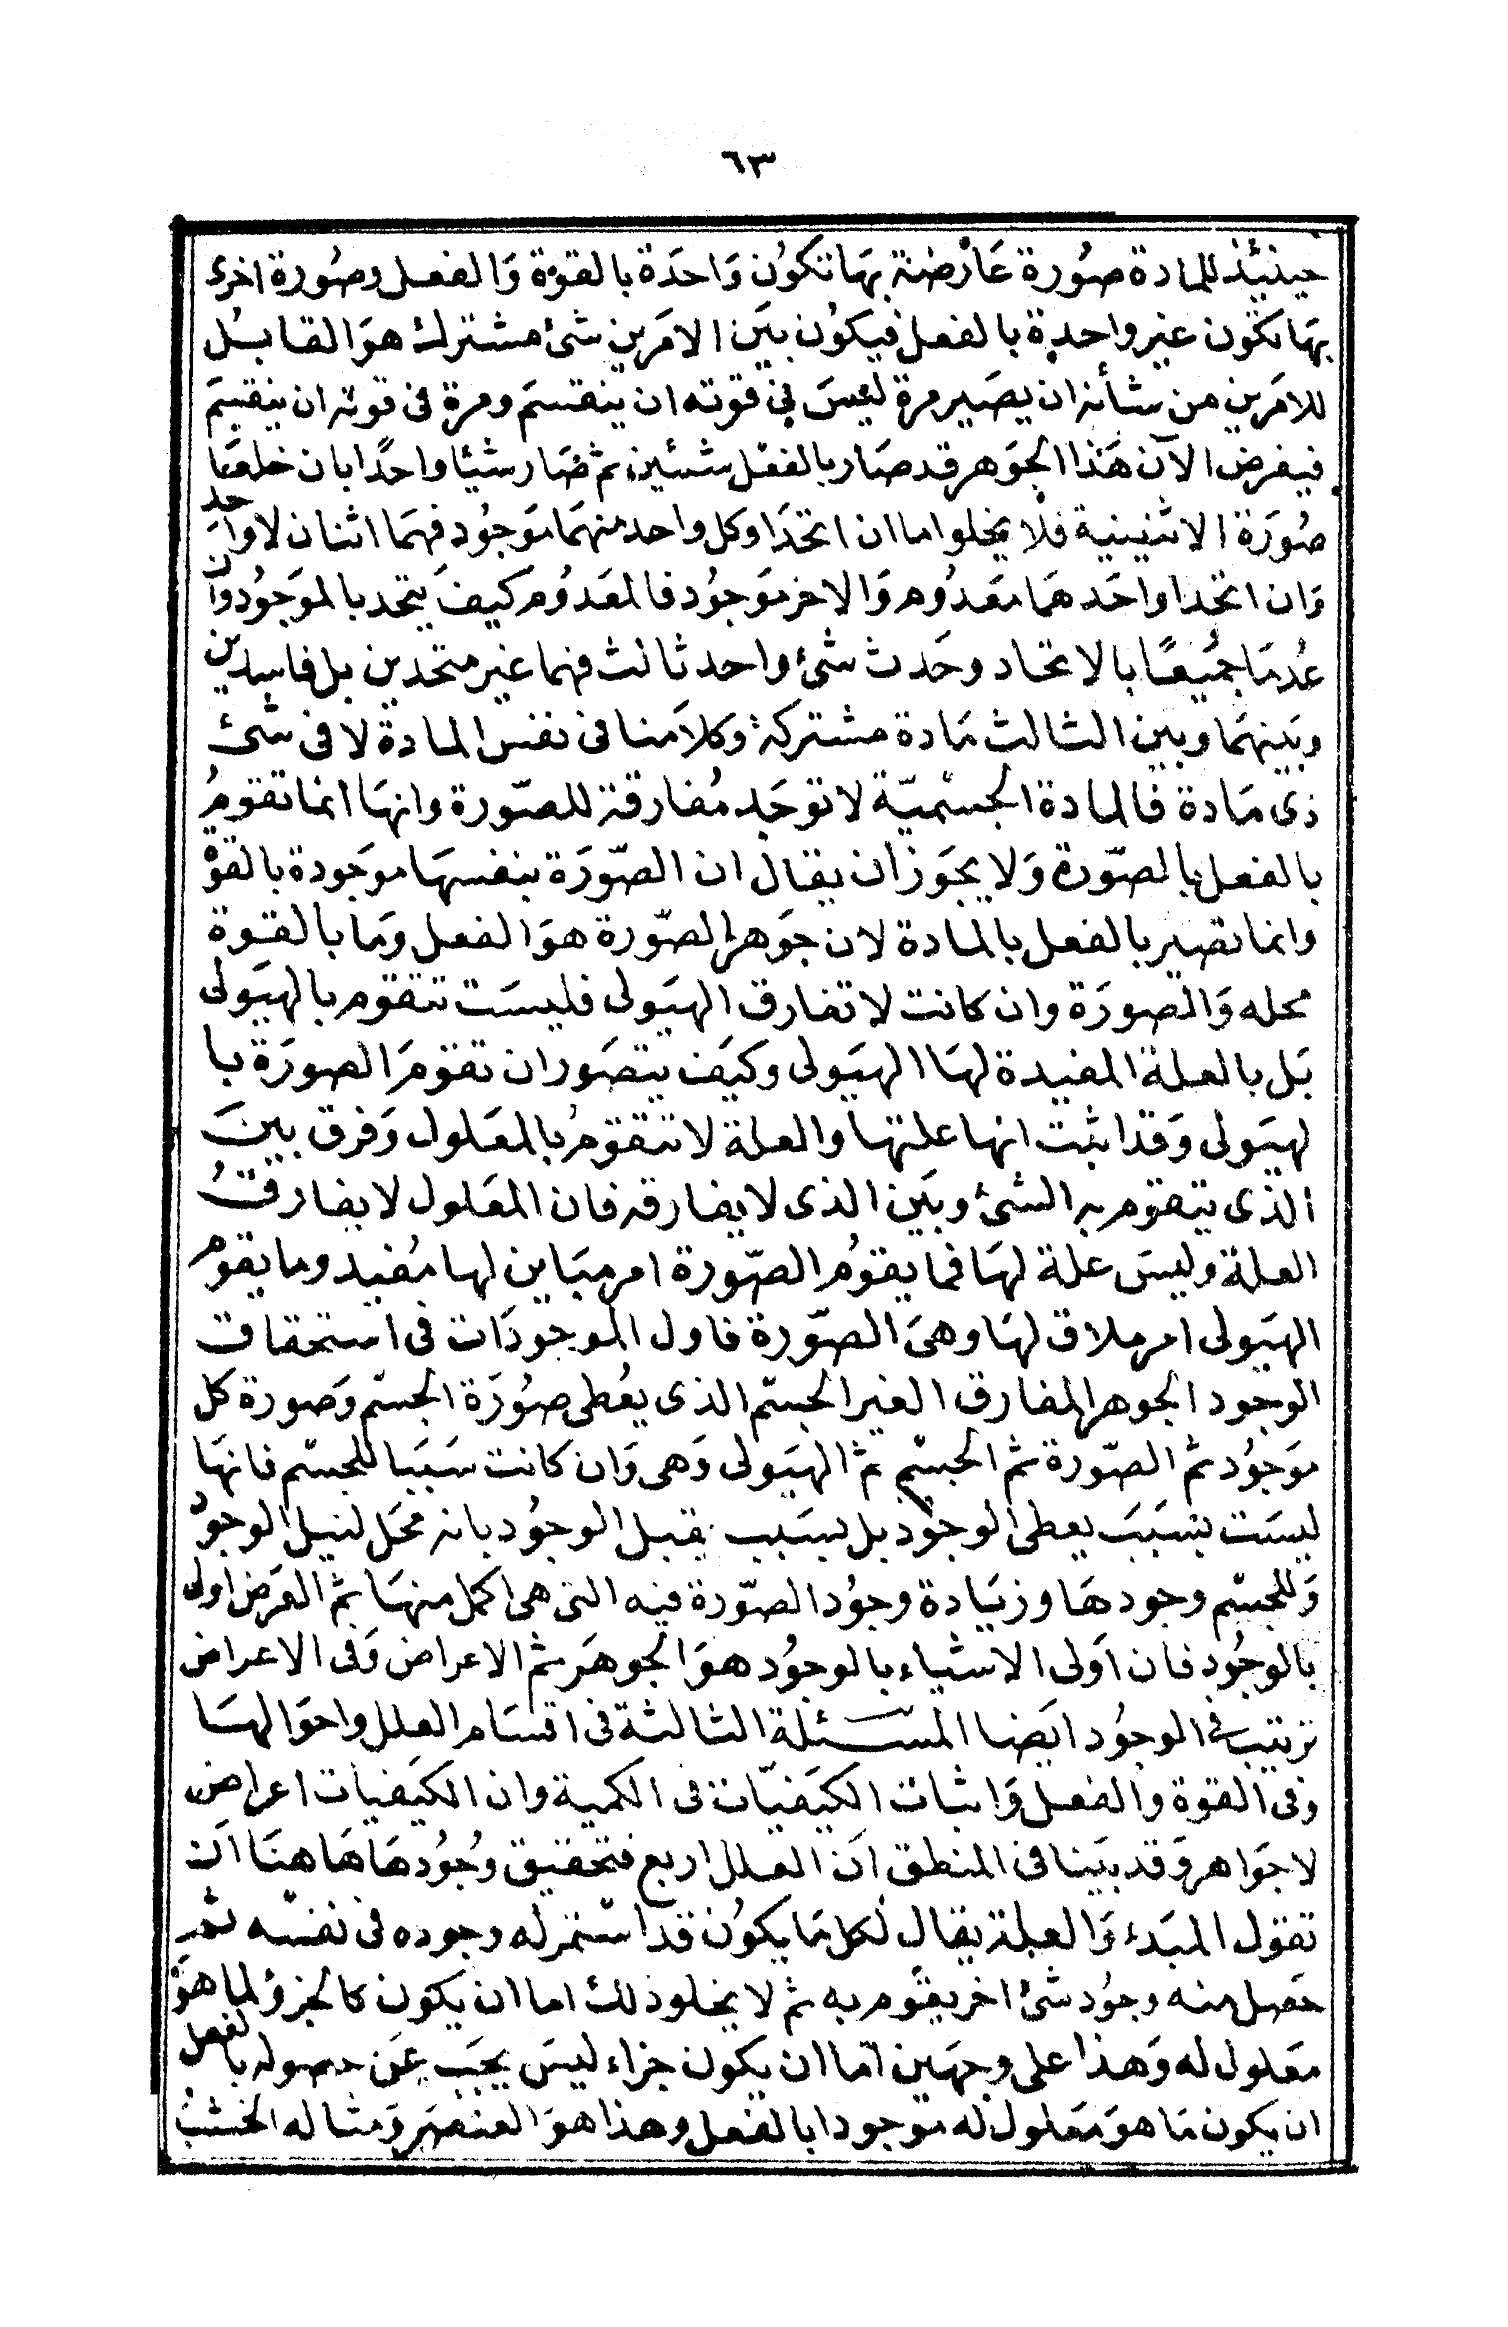 ٦٣
حينئذ للمادة صورة عارضة بها تكون واحدة بالقوة والفعل وصورة اخرى
بها تكون غير واحدة بالفعل فيكون بين الامرين شئ مشترك هو القابل
للامرين من شأنه ان يصير مرة ليس في قوته ان ينقسم ومرة في قوته ان ينقسم
فيفرض الآن هذا الجوهر قد صار بالفعل شيئين ثم صار شيئا واحدًا بان خلعا
صورة الاثنينية فلا يخلوا اما ان اتحدا وكل واحد منهما موجود فهما اثنان لا واحد
وان اتحدا واحدهما معدوم والاخر موجود فالمعدوم كيف يتحد بالموجود وان
عدما جميعًا بالاتحاد وحدث شئ واحد ثالث فهما غير متحدين بل فاسدين
وبينهما وبين الثالث مادة مشتركة وكلامنا في نفس المادة لا في شئ
ذى مادة فالمادة الجسميّة لا توجد مفارقة للصّورة وانها انما تقوم
بالفعل بالصّورة ولا يجوز ان يقال ان الصّورة بنفسها موجودة بالقوة
وانما تصير بالفعل بالمادة لان جوهر الصّورة هو الفعل وما بالقوة
محله والصورة وان كانت لا تفارق الهيولى فليست تتقوم بالهيولى
بل بالعلة المفيدة لها الهيولى وكيف يتصور ان تقوم الصورة با
لهيولى وقد اثبت انها علتها والعلة لا تتقوم بالمعلول وفرق بين
الذى يتقوم به الشئ وبين الذى لا يفارقه فان المعلول لا يفارق
العلة وليس علة لها فما يقوم الصّورة امر مباين لها مفيد وما يقوم
الهيولى امر ملاق لها وهى الصّورة فاول الموجودات في استحقاق
الوجود الجوهر المفارق الغير الجسّم الذى يعطى صورة الجسّم وصورة كل
موجود ثم الصّورة ثم الجسم ثم الهيولى وهى وان كانت سببا للجسّم فانها
ليست بسبب يعطى الوجود بل بسبب يقبل الوجود بانه محل لنيل الوجود
وللجسم وجودها وزيادة وجود الصّورة فيه التى هى اكمل منها ثم العرض اولى
بالوجود فان اولى الاشياء بالوجود هو الجوهر ثم الاعراض وفى الاعراض
ترتيب في الوجود ايضا المسئلة الثالثة في اقسام العلل واحوالها
وفى القوة والفعل واثبات الكيفيّات في الكمية وان الكيفيات اعراض
لا جواهر وقد بينا في المنطق ان العلل اربع فتحقيق وجودها هاهنا ان
تقول المبدء والعلة يقال لكل ما يكون قد استمر له وجوده في نفسه ثم
حصل منه وجود شئ اخر يقوم به ثم لا يخلو ذلك اما ان يكون كالجزؤ لما هو
معلول له وهذا على وجهين اما ان يكون جزاء ليس يجب عن حصوله بالفعل
ان يكون ما هو معلول له موجودا بالفعل وهذا هو العنصر ومثاله الخشب